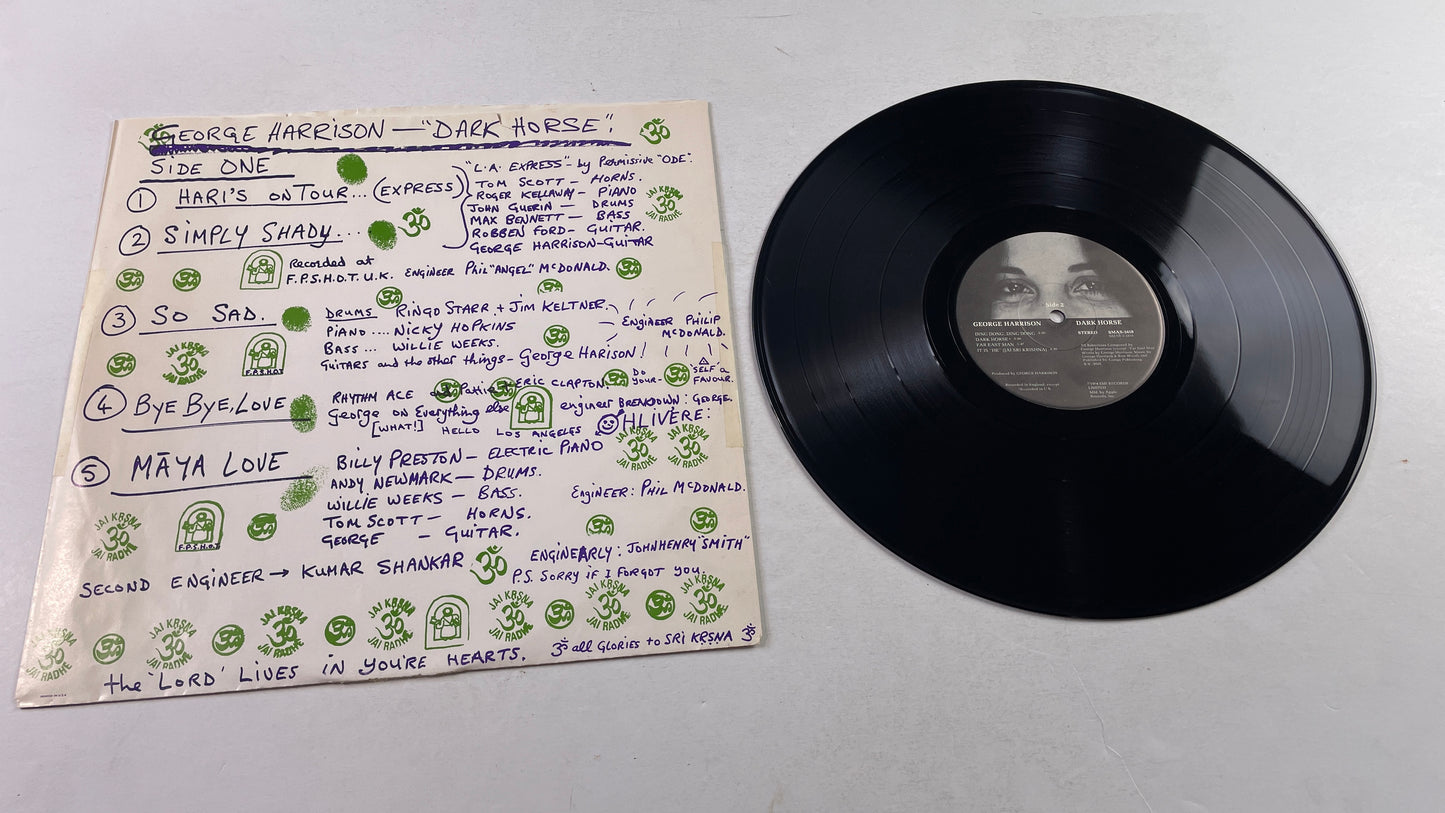 GEORGE HARRISON — "DARK HORSE".
SIDE ONE
"L.A. EXPRESS" - by Permissive "ODE".
① HARI'S ON TOUR... (EXPRESS)
TOM SCOTT - HORNS.
ROGER KELLAWAY - PIANO
JOHN GUERIN - DRUMS
MAX BENNETT - BASS
ROBBEN FORD - GUITAR.
GEORGE HARRISON - GUITAR
JAI KRSNA
ॐ
JAI RADHE
② SIMPLY SHADY...
Recorded at
F.P.S.H.O.T. U.K. ENGINEER Phil "ANGEL" McDONALD.
③ SO SAD.
DRUMS RINGO STARR + JIM KELTNER.
PIANO .... NICKY HOPKINS
BASS ... WILLIE WEEKS.
GUITARS and the other things - GEORGE HARISON!
ENGINEER PHILIP
McDONALD.
JAI KRSNA
ॐ
JAI RADHE
F.P.S.H.O.T
④ BYE BYE, LOVE
RHYTHM ACE and Pattie + ERIC CLAPTON
George on Everything else
DO YOUR- 'SELF a FAVOUR.
engineer BREAKDOWN: GEORGE.
[WHAT!] HELLO LOS ANGELES
OHLIVERE:
JAI KRSNA
ॐ
JAI RADHE
JAI KRSNA
ॐ
JAI RADHE
⑤ MĀYA LOVE
BILLY PRESTON - ELECTRIC PIANO
ANDY NEWMARK - DRUMS.
WILLIE WEEKS - BASS.
TOM SCOTT - HORNS.
GEORGE - GUITAR.
Engineer: PHIL McDONALD.
JAI KRSNA
ॐ
JAI RADHE
F.P.S.H.O.T
SECOND ENGINEER → KUMAR SHANKAR ॐ
ENGINEARLY: JOHNHENRY "SMITH"
P.S. SORRY IF I FORGOT YOU.
JAI KRSNA
ॐ
JAI RADHE
JAI KRSNA
ॐ
JAI RADHE
JAI KRSNA
ॐ
JAI RADHE
JAI KRSNA
ॐ
JAI RADHE
JAI KRSNA
ॐ
JAI RADHE
JAI KRSNA
ॐ
JAI RADHE
JAI KRSNA
ॐ
JAI RADHE
the 'LORD' LIVES IN YOU'RE HEARTS.
ॐ all GLORIES to SRI KRṢNA ॐ
Side 2
GEORGE HARRISON DARK HORSE
DING DONG, DING DONG
DARK HORSE
FAR EAST MAN
IT IS 'HE' (JAI SRI KRISHNA)
STEREO SMAS-3418
Produced by GEORGE HARRISON
Recorded in England, except